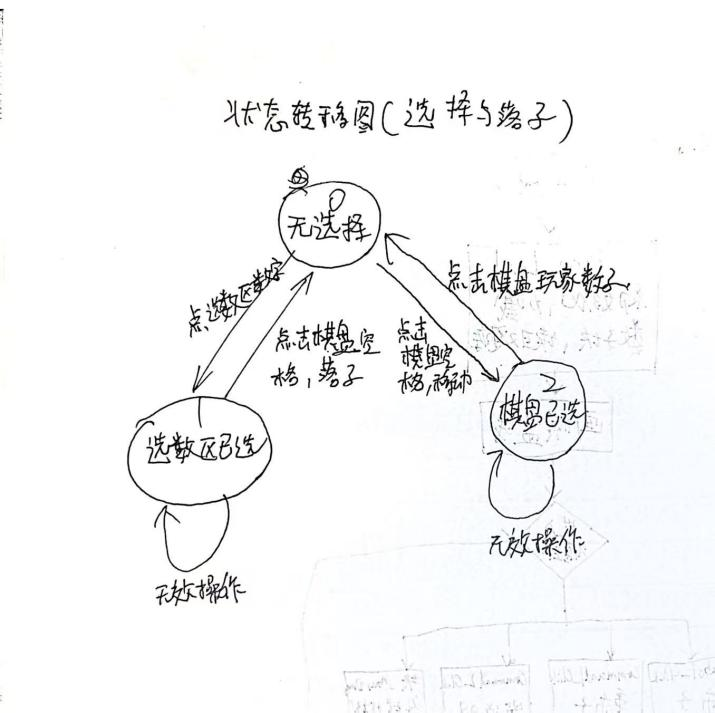 状态转移图(选择与落子)
0
无选择
点选数区数字
点击棋盘空
格,落子
点击
棋盘空
格,移动
点击棋盘玩家数子
1
选数区已选
2
棋盘已选
无效操作
无效操作